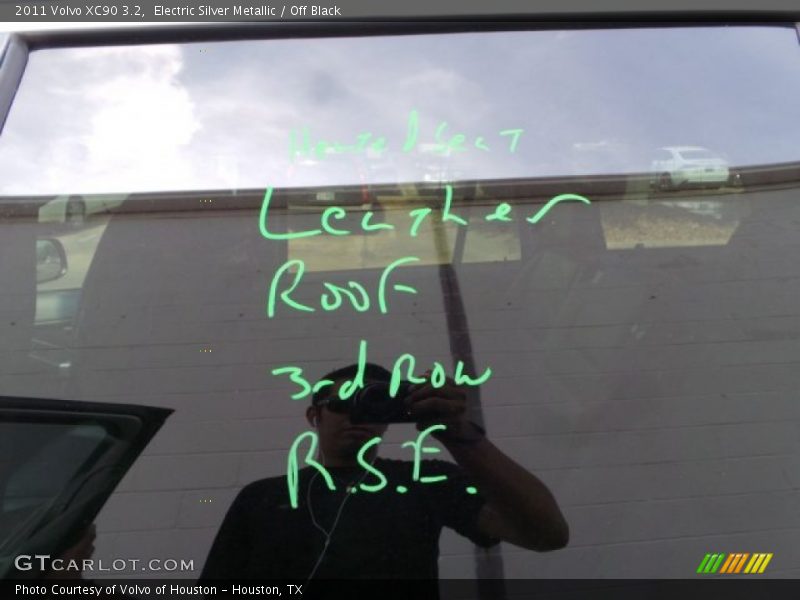 2011 Volvo XC90 3.2, Electric Silver Metallic / Off Black
Heated Seat
Leather
Roof
3rd Row
R.S.E.
GTCARLOT.COM
Photo Courtesy of Volvo of Houston - Houston, TX